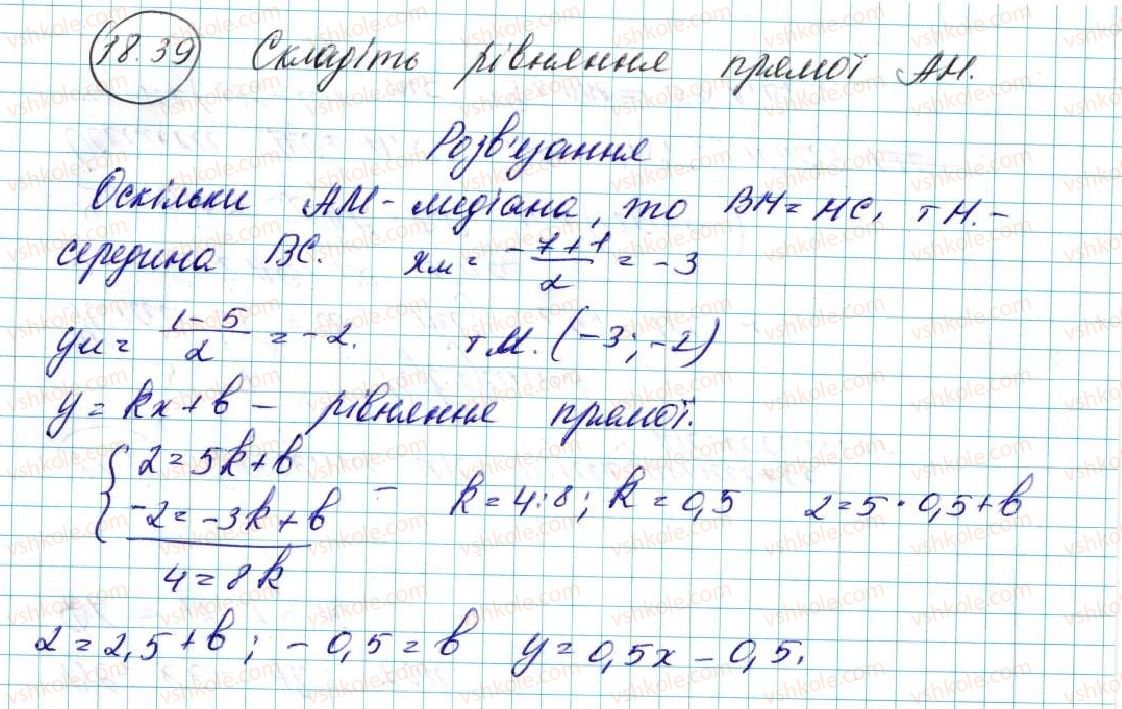 18.39 Складіть рівняння прямої АМ.
Розв'язання
Оскільки АМ - медіана, то ВМ = МС, т М. -
середина ВС. xм = -7+1/2 = -3
yм = 1-5/2 = -2. т М. (-3; -2)
y = kx + b - рівняння прямої.
{ 2 = 5k + b
-2 = -3k + b - k = 4:8; k = 0,5 2 = 5 · 0,5 + b
4 = 8k
2 = 2,5 + b; -0,5 = b y = 0,5x - 0,5.